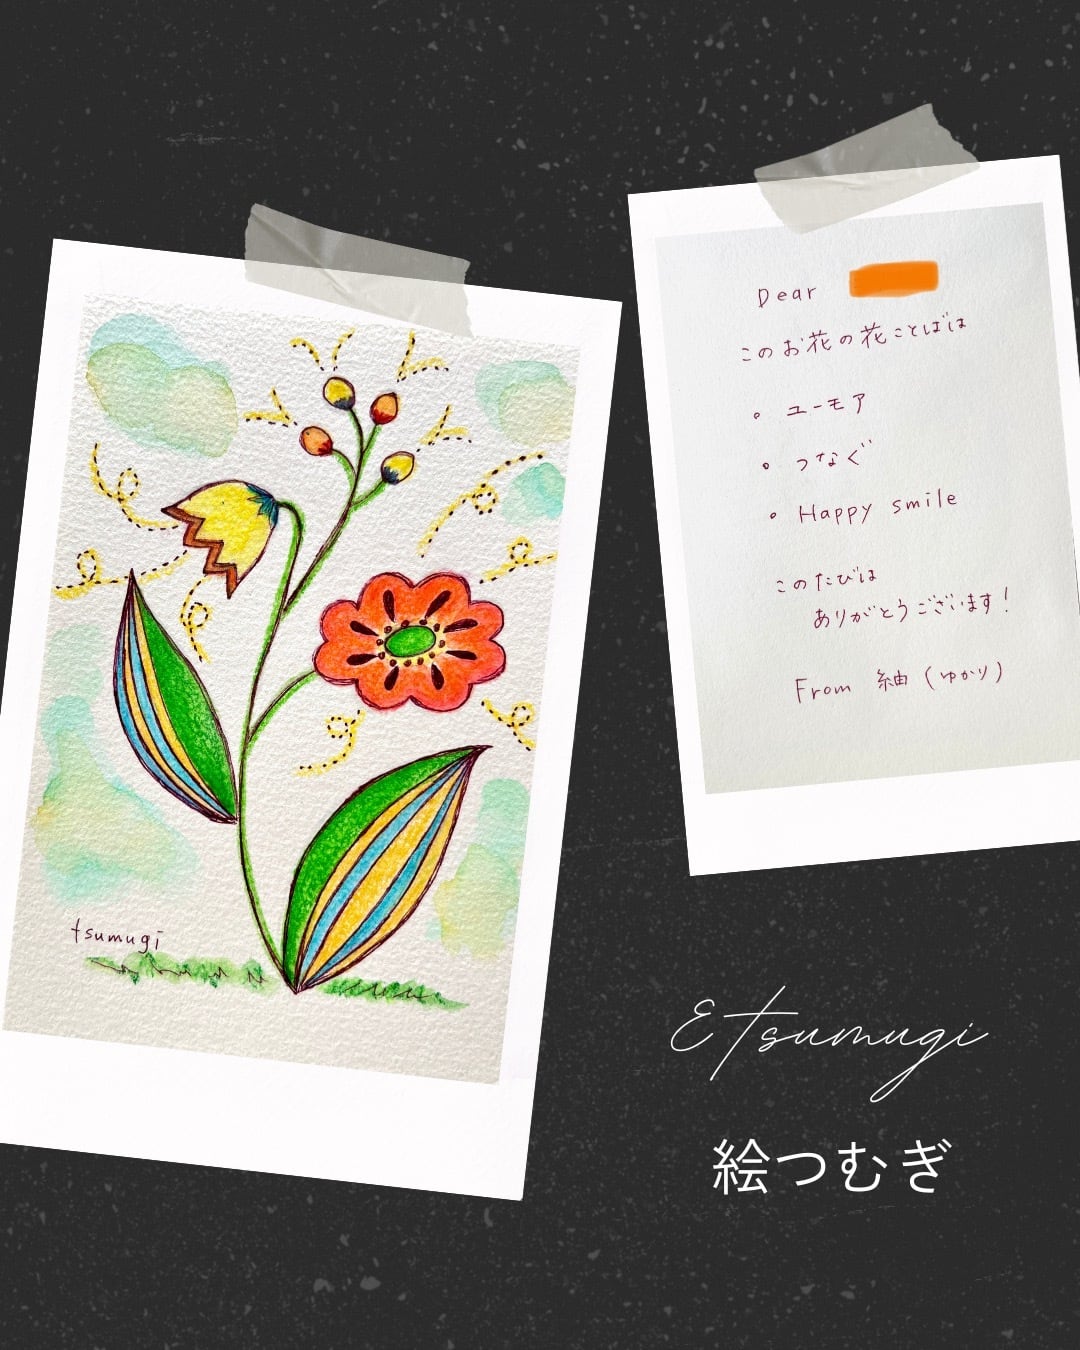 tsumugi
Dear
このお花の花ことばは
• ユーモア
• つなぐ
• Happy smile
このたびは
ありがとうございます!
From 紬(ゆかり)
Etsumugi
絵つむぎ